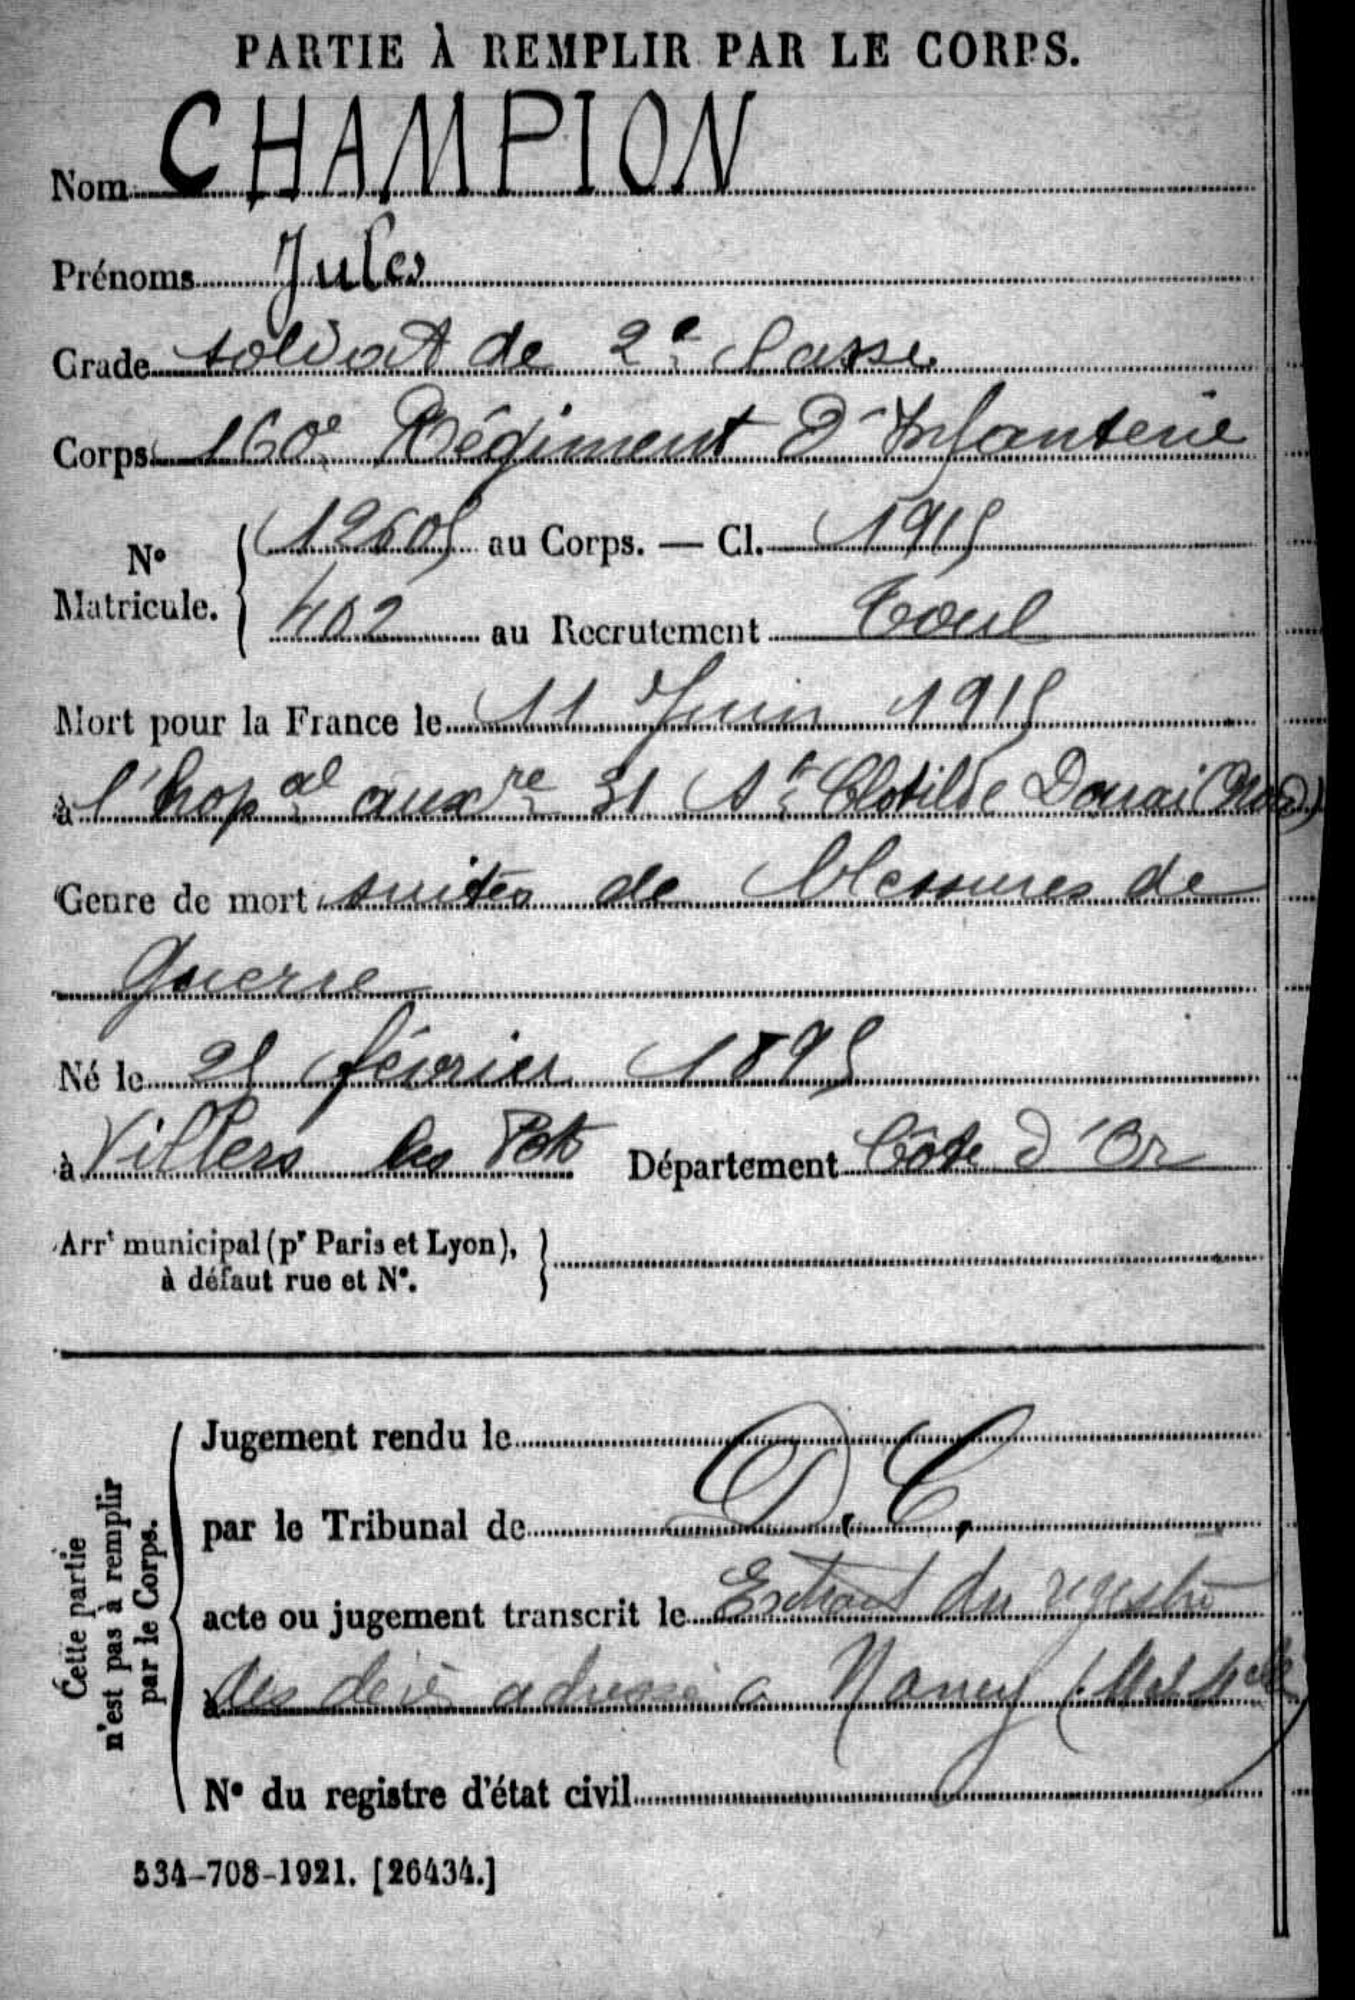 PARTIE À REMPLIR PAR LE CORPS.
Nom CHAMPION
Prénoms Jules
Grade soldat de 2e classe
Corps 160e Régiment d'Infanterie
N° Matricule. { 12605 au Corps. — Cl. 1915
402 au Recrutement Toul
Mort pour la France le 11 Juin 1915
à l'hopal auxre 31 Ste Clotilde Douai (Nord)
Genre de mort suites de blessures de
Guerre
Né le 25 février 1895
à Villers les Pots Département Côte d'Or
Arrt municipal (pr Paris et Lyon), }
à défaut rue et N°.
Cette partie
n'est pas à remplir
par le Corps.
Jugement rendu le
par le Tribunal de D. C.
acte ou jugement transcrit le Extrait du registre
à des décès adressé à Nancy (Mthe Melle)
N° du registre d'état civil
534-708-1921. [26434.]